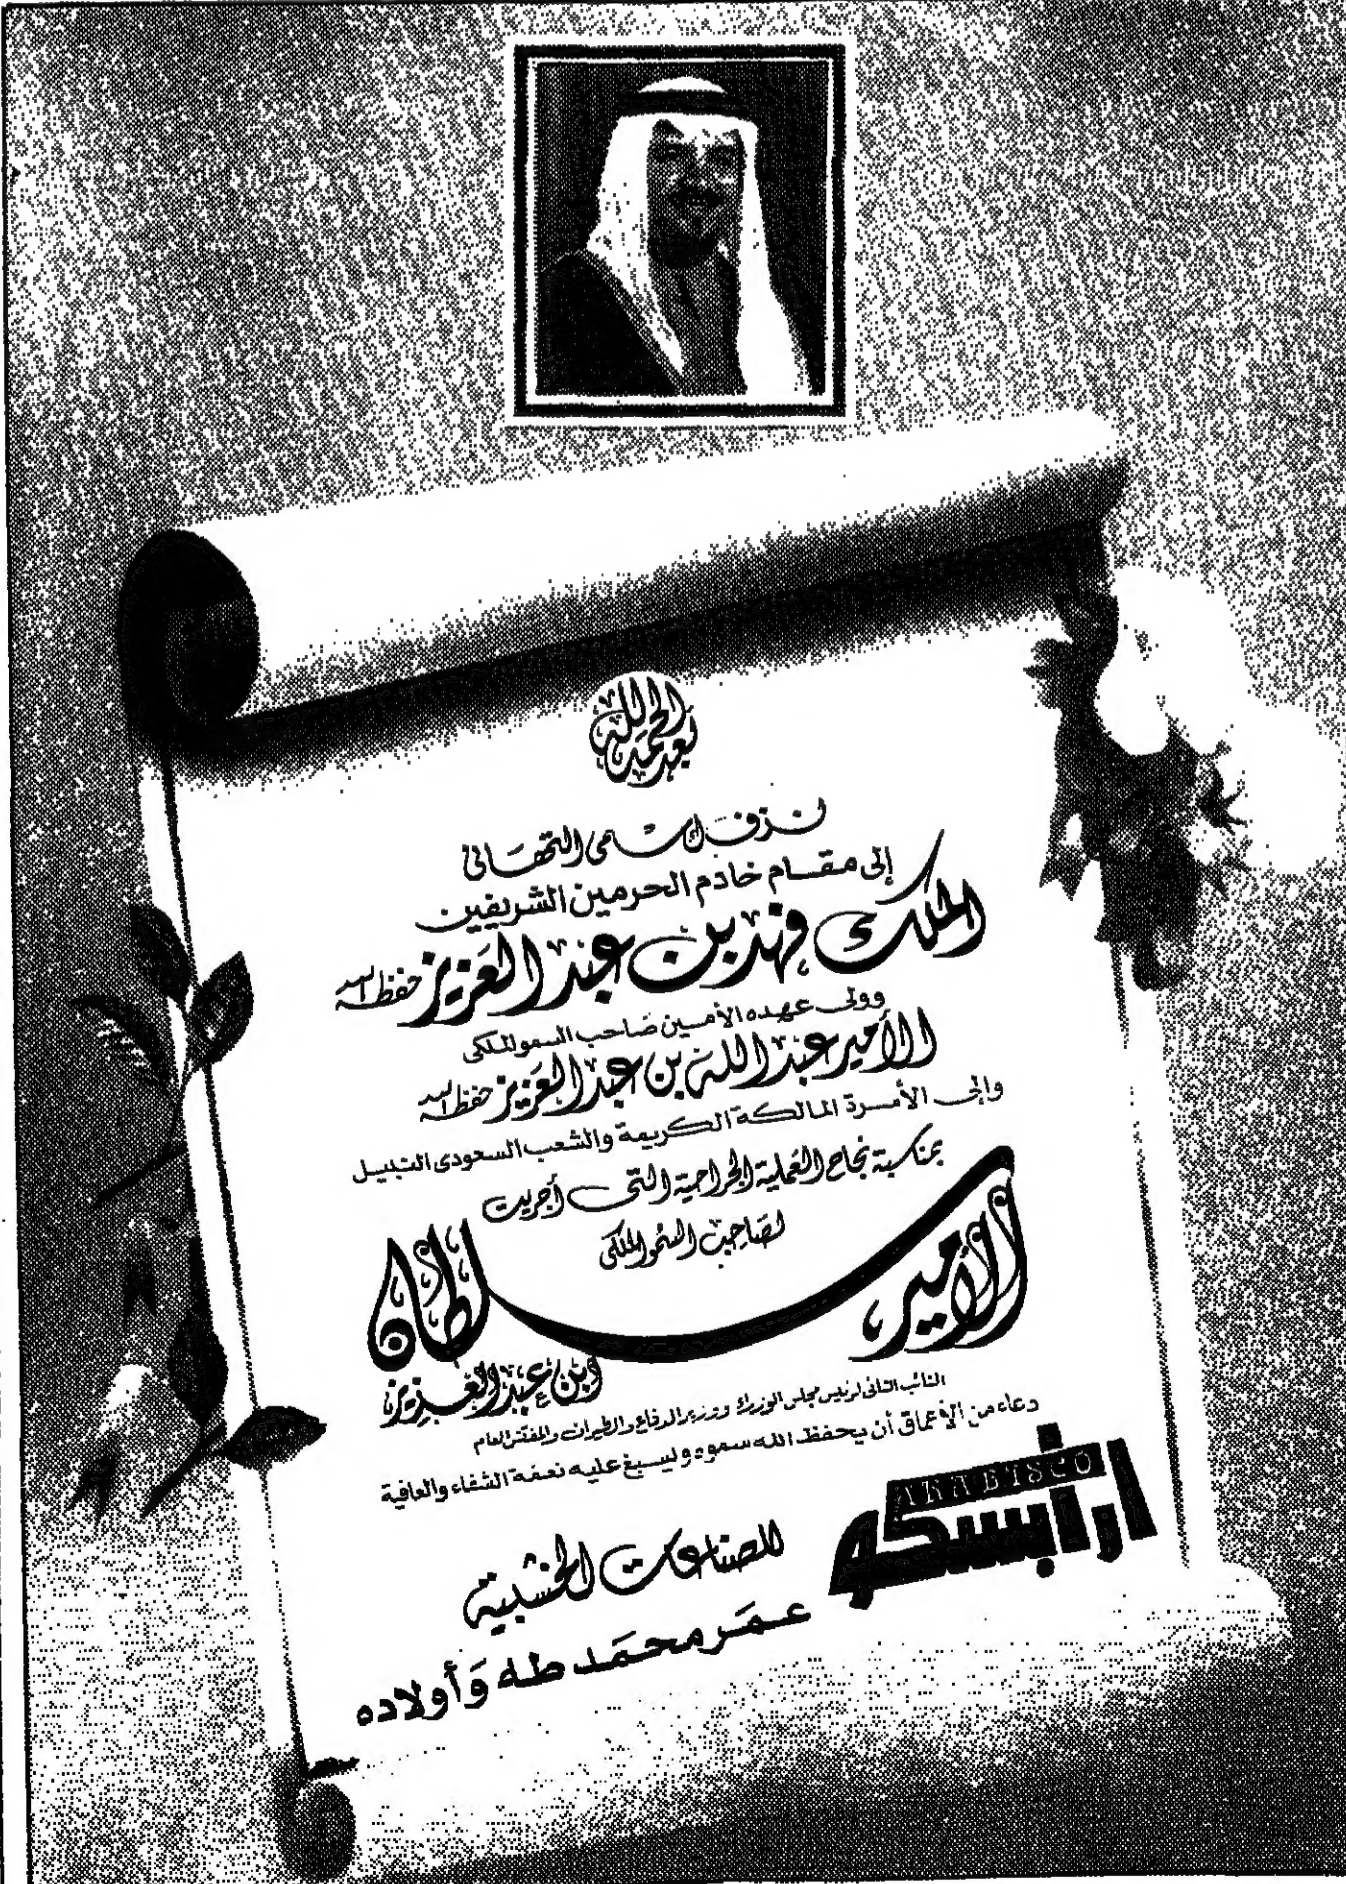 بعد الحمد لله
نزف أسمى التهاني
إلى مقام خادم الحرمين الشريفين
الملك فهد بن عبد العزيز حفظه الله
وولي عهده الأمين صاحب السمو الملكي
الأمير عبد الله بن عبد العزيز حفظه الله
وإلى الأسرة المالكة الكريمة والشعب السعودي النبيل
بمناسبة نجاح العملية الجراحية التي أجريت
لصاحب السمو الملكي
الأمير سلطان
ابن عبد العزيز
النائب الثاني لرئيس مجلس الوزراء ووزير الدفاع والطيران والمفتش العام
دعاء من الأعماق أن يحفظ الله سموه ويسبغ عليه نعمة الشفاء والعافية
ARABISCO
ارابسكو
للصناعات الخشبية
عمر محمد طه وأولاده